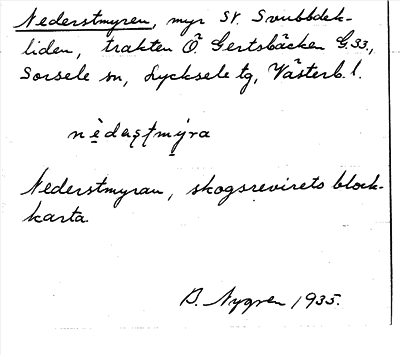 Nederstmyren, myr SV. Snubbdek-
liden, trakten Ö Gertsbäcken G.33.,
Sorsele sn, Lycksele tg, Västerb. l.
nèdaʂʈmýra
Nederstmyran, skogsrevirets block-
karta.
B. Nygren 1935.